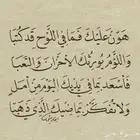 هون عليك فما في اللوح قد كتبا
واللوم يورثك الأحزان والتعبا
فأسعد بما في يديك اليوم من أمل
ولا تفكر بماضيك الذي ذهبا